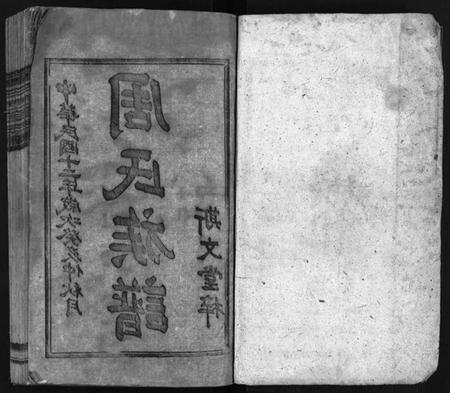 中華民國十二年歲次癸亥仲秋月
周氏族譜
斯文堂梓